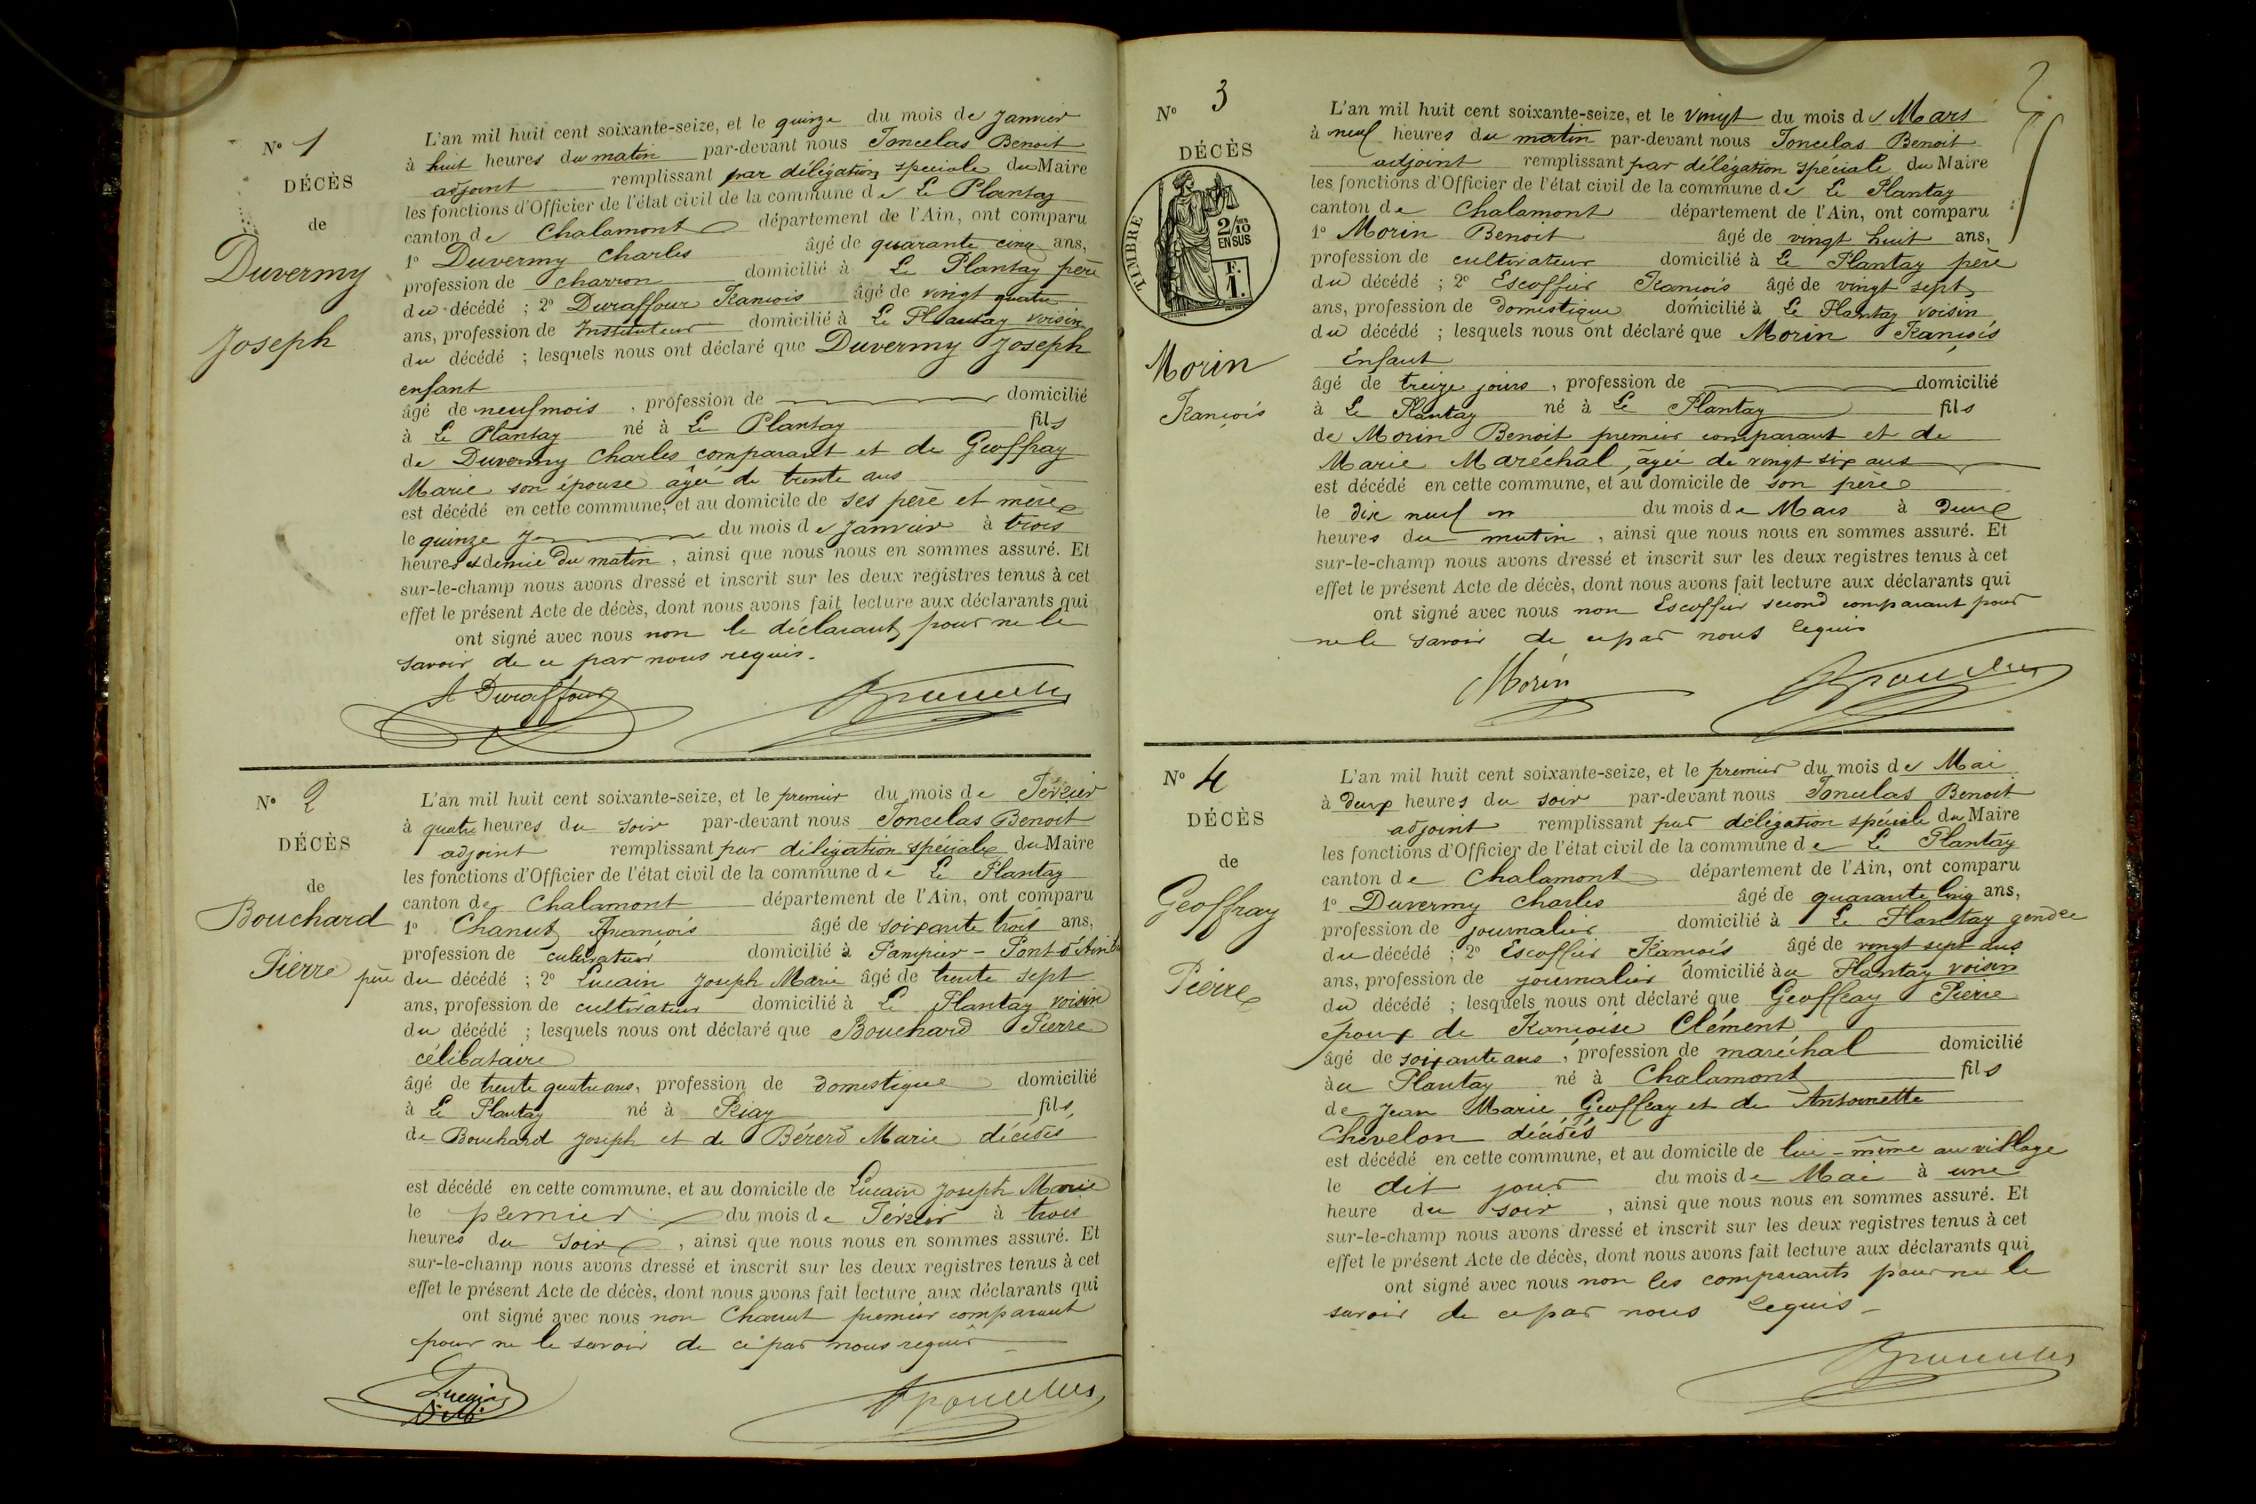 N° 1
DÉCÈS
de
Duvermy
Joseph
L'an mil huit cent soixante-seize, et le quinze du mois de Janvier
à huit heures du matin par-devant nous Joncelas Benoit
adjoint remplissant par délégation spéciale du Maire
les fonctions d'Officier de l'état civil de la commune de Le Plantay
canton de Chalamont département de l'Ain, ont comparu
1° Duvermy Charles âgé de quarante cinq ans,
profession de charron domicilié à Le Plantay père
du décédé ; 2° Duraffour François âgé de vingt quatre
ans, profession de Instituteur domicilié à Le Plantay voisin
du décédé ; lesquels nous ont déclaré que Duvermy Joseph
enfant
âgé de neuf mois , profession de domicilié
à Le Plantay né à Le Plantay fils
de Duvermy Charles comparant et de Geoffray
Marie son épouse âgée de trente ans
est décédé en cette commune, et au domicile de ses père et mère
le quinze du mois de Janvier à trois
heures et demie du matin , ainsi que nous nous en sommes assuré. Et
sur-le-champ nous avons dressé et inscrit sur les deux registres tenus à cet
effet le présent Acte de décès, dont nous avons fait lecture aux déclarants qui
ont signé avec nous non le déclarant pour ne le
savoir de ce par nous requis.
A Duraffour
N° 2
DÉCÈS
de
Bouchard
Pierre
L'an mil huit cent soixante-seize, et le premier du mois de Février
à quatre heures du soir par-devant nous Joncelas Benoit
adjoint remplissant par délégation spéciale du Maire
les fonctions d'Officier de l'état civil de la commune de Le Plantay
canton de Chalamont département de l'Ain, ont comparu
1° Chanut François âgé de soixante trois ans,
profession de cultivateur domicilié à Pampier - Pont d'Ain
père du décédé ; 2° Lucain Joseph Marie âgé de trente sept
ans, profession de cultivateur domicilié à Le Plantay voisin
du décédé ; lesquels nous ont déclaré que Bouchard Pierre
célibataire
âgé de trente quatre ans, profession de domestique domicilié
à Le Plantay né à Priay fils
de Bouchard Joseph et de Bérerd Marie décédés
est décédé en cette commune, et au domicile de Lucain Joseph Marie
le premier du mois de Février à trois
heures du soir , ainsi que nous nous en sommes assuré. Et
sur-le-champ nous avons dressé et inscrit sur les deux registres tenus à cet
effet le présent Acte de décès, dont nous avons fait lecture aux déclarants qui
ont signé avec nous non Chanut premier comparant
pour ne le savoir de ce par nous requis
Lucain
N° 3
DÉCÈS
TIMBRE
2/10
EN SUS
F.
1.
Morin
François
L'an mil huit cent soixante-seize, et le vingt du mois de Mars
à neuf heures du matin par-devant nous Joncelas Benoit
adjoint remplissant par délégation spéciale du Maire
les fonctions d'Officier de l'état civil de la commune de Le Plantay
canton de Chalamont département de l'Ain, ont comparu
1° Morin Benoit âgé de vingt huit ans,
profession de cultivateur domicilié à Le Plantay père
du décédé ; 2° Escoffier François âgé de vingt sept
ans, profession de domestique domicilié à Le Plantay voisin
du décédé ; lesquels nous ont déclaré que Morin François
Enfant
âgé de treize jours , profession de domicilié
à Le Plantay né à Le Plantay fils
de Morin Benoit premier comparant et de
Marie Maréchal, âgée de vingt six ans
est décédé en cette commune, et au domicile de son père
le dix neuf du mois de Mars à deux
heures du matin , ainsi que nous nous en sommes assuré. Et
sur-le-champ nous avons dressé et inscrit sur les deux registres tenus à cet
effet le présent Acte de décès, dont nous avons fait lecture aux déclarants qui
ont signé avec nous non Escoffier second comparant pour
ne le savoir de ce par nous requis
Morin
N° 4
DÉCÈS
de
Geoffray
Pierre
L'an mil huit cent soixante-seize, et le premier du mois de Mai
à deux heures du soir par-devant nous Joncelas Benoit
adjoint remplissant par délégation spéciale du Maire
les fonctions d'Officier de l'état civil de la commune de Le Plantay
canton de Chalamont département de l'Ain, ont comparu
1° Duvermy Charles âgé de quarante cinq ans,
profession de journalier domicilié à Le Plantay gendre
du décédé ; 2° Escoffier François âgé de vingt sept ans
ans, profession de journalier domicilié au Plantay voisin
du décédé ; lesquels nous ont déclaré que Geoffray Pierre
époux de Françoise Clément
âgé de soixante ans , profession de maréchal domicilié
au Plantay né à Chalamont fils
de Jean Marie Geoffray et de Antoinette
Chevelon décédés
est décédé en cette commune, et au domicile de lui-même au village
le dit jour du mois de Mai à une
heure du soir , ainsi que nous nous en sommes assuré. Et
sur-le-champ nous avons dressé et inscrit sur les deux registres tenus à cet
effet le présent Acte de décès, dont nous avons fait lecture aux déclarants qui
ont signé avec nous non les comparants pour ne le
savoir de ce par nous requis -